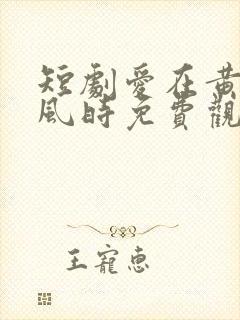 短劇愛在黃
風時免費觀
王寵惠